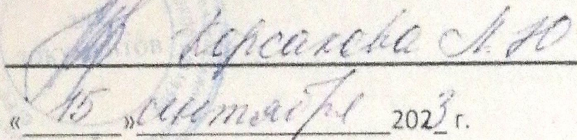 Корсакова М.Ю
«15» сентября 2023 г.